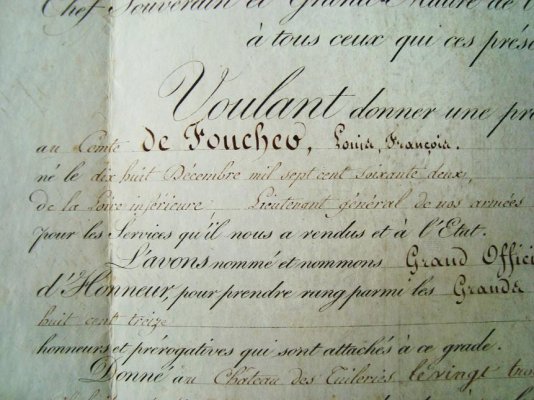 Chef Souverain et Grand-Maître de l
à tous ceux qui ces prés
Voulant donner une pr
au Comte de Foucher, Louis, François.
né le dix huit Décembre mil sept cent soixante deux,
de la Loire inférieure. Lieutenant général de nos armées
pour les Services qu'il nous a rendus et à l'Etat.
L'avons nommé et nommons Grand Offici
d'Honneur, pour prendre rang parmi les Grands
huit cent treize
honneurs et prérogatives qui sont attachés à ce grade.
Donné au Chateau des Tuileries le vingt tro